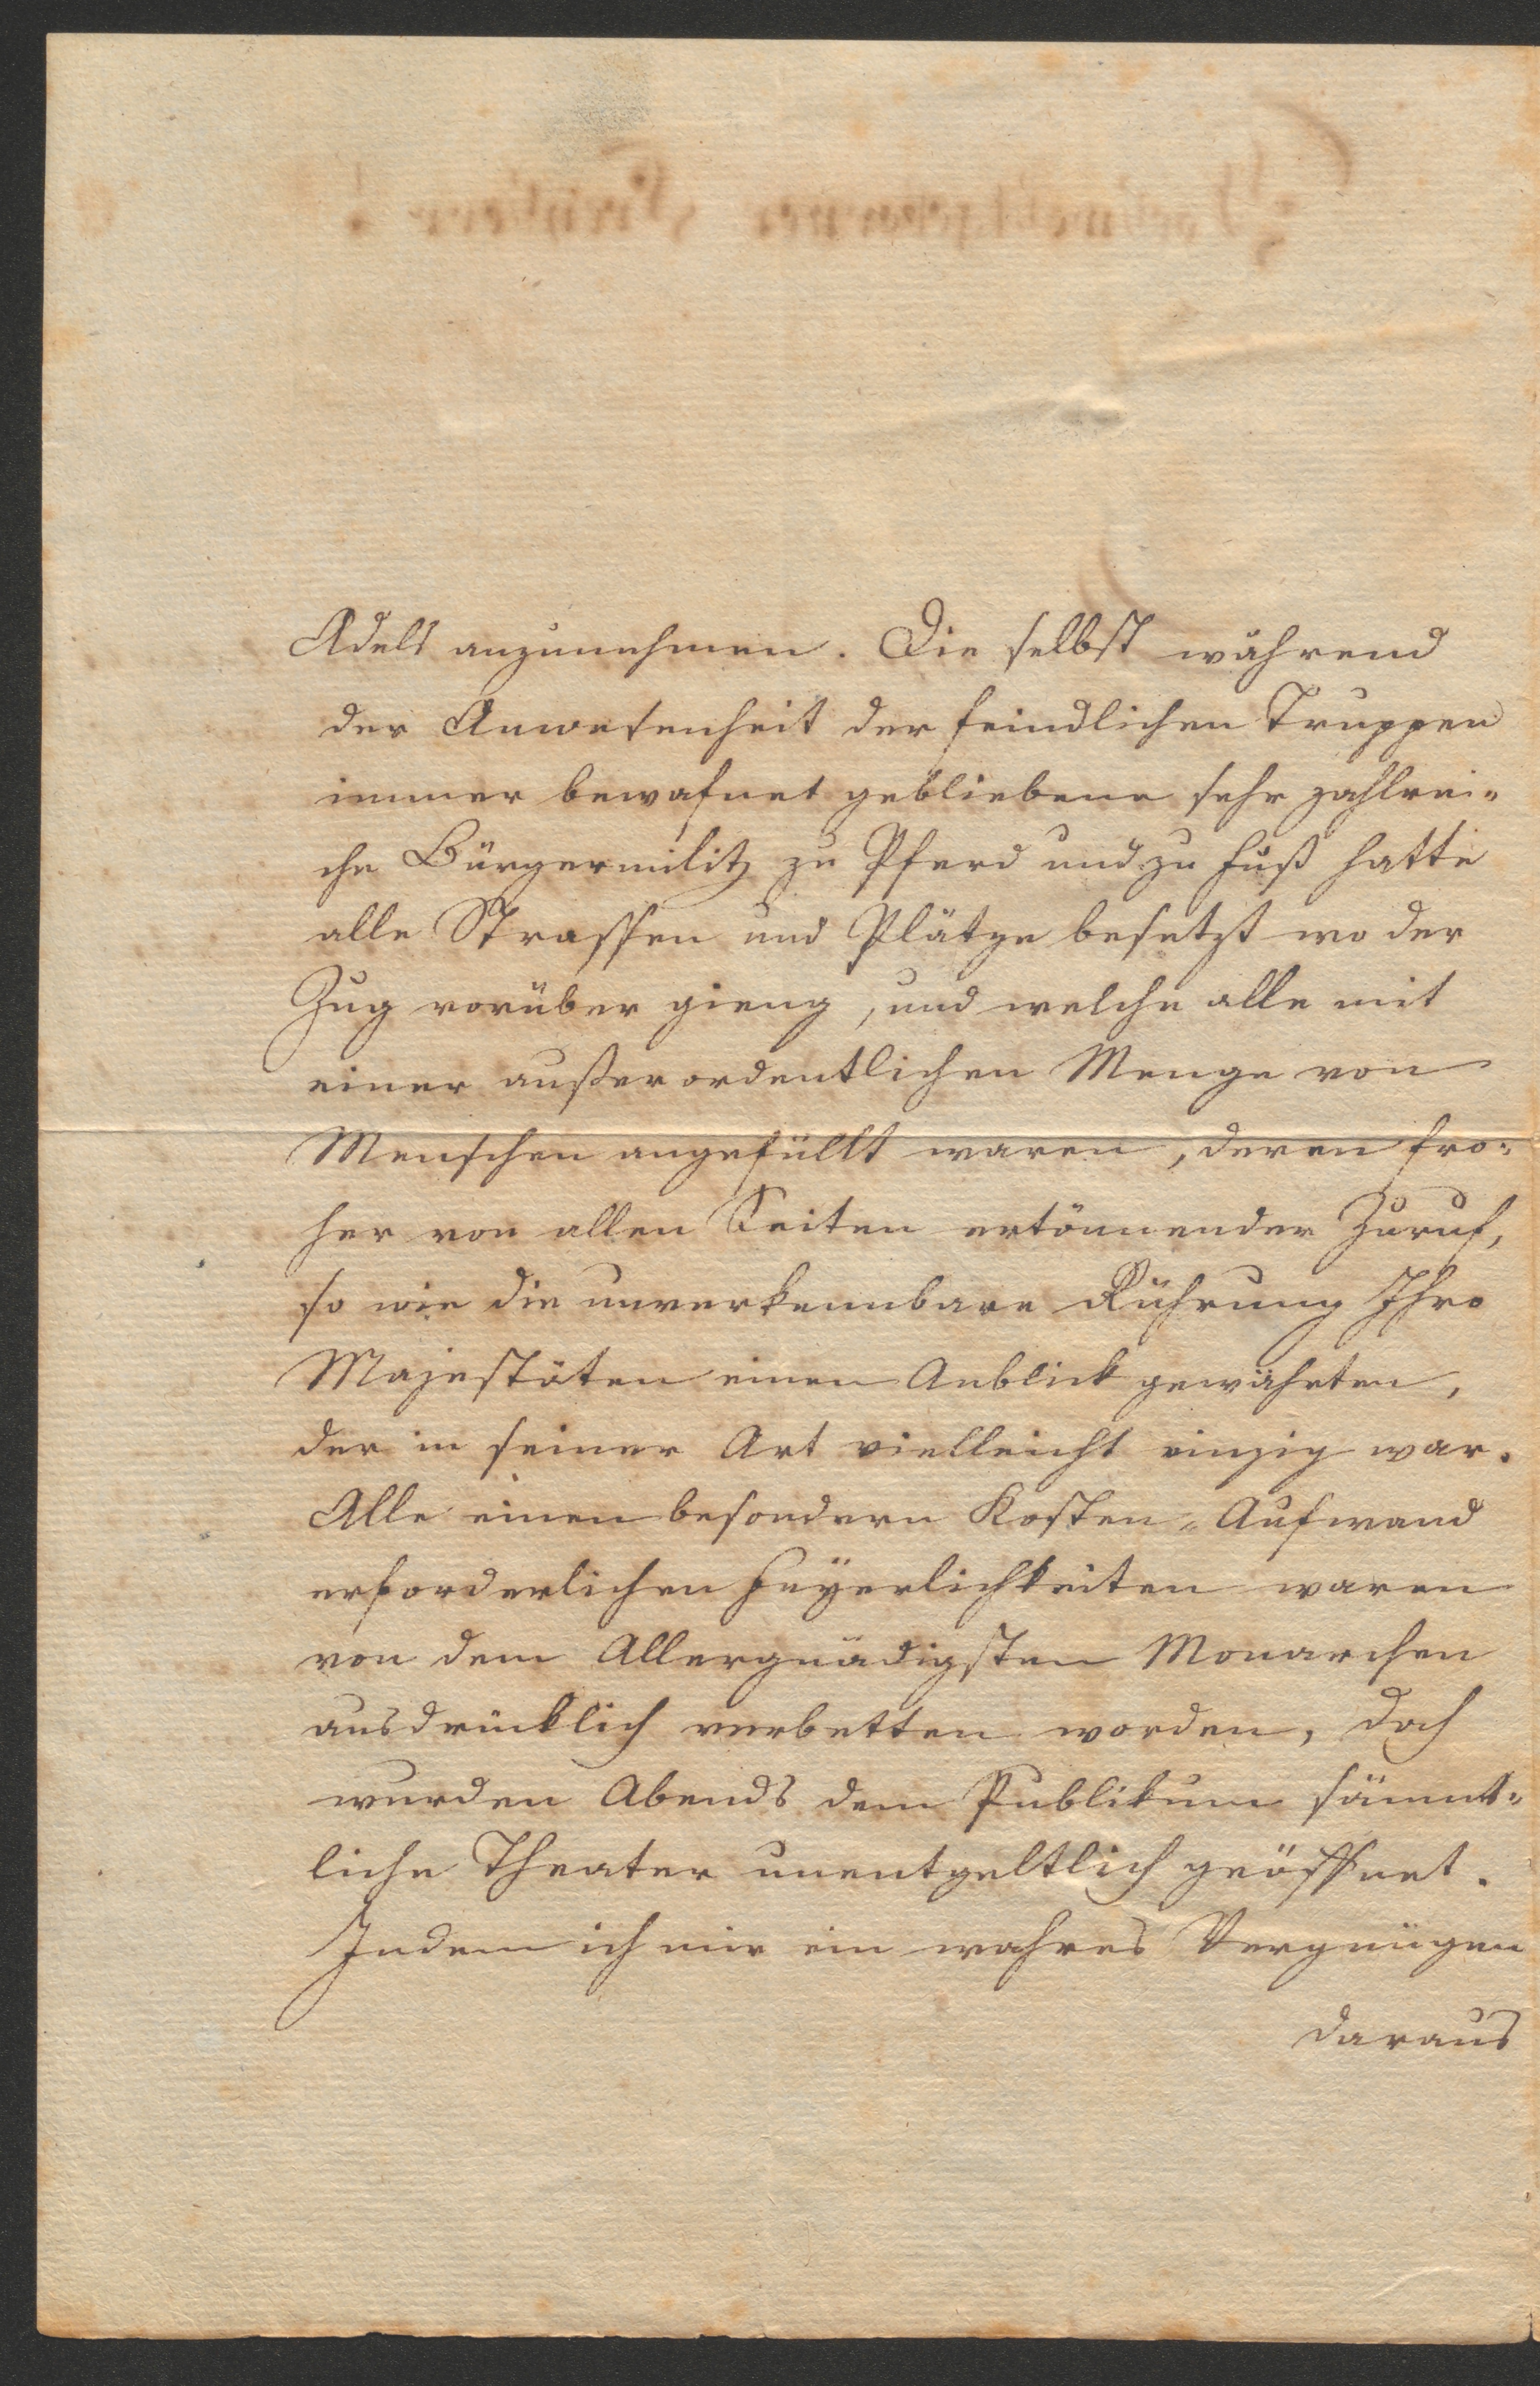 Adels anzunehmen. Die selbst während
der Anwesenheit der feindlichen Truppen
immer bewafnet gebliebene sehr zahlrei-
che Bürgermilitz zu Pferd und zu Fuß hatte
alle Strassen und Plätze besetzt wo der
Zug vorüber gieng, und welche alle mit
einer außerordentlichen Menge von
Menschen angefüllt waren, deren fro-
her von allen Seiten ertönnender Zuruf,
so wie die unverkennbare Rührung Ihro
Majestäten einen Anblick gewährten,
der in seiner Art vielleicht einzig war.
Alle einen besondern Kosten-Aufwand
erforderlichen Feyerlichkeiten waren
von dem Allergnädigsten Monarchen
ausdrücklich verbetten worden, doch
wurden Abends dem Publikum sämmt-
liche Theater unentgeltlich geöffnet.
Indem ich mir ein wahres Vergnügen
daraus